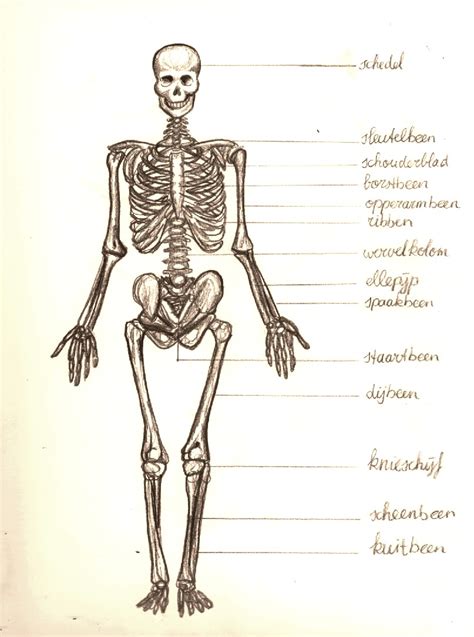 schedel
sleutelbeen
schouderblad
borstbeen
opperarmbeen
ribben
wervelkolom
ellepijp
spaakbeen
staartbeen
dijbeen
knieschijf
scheenbeen
kuitbeen